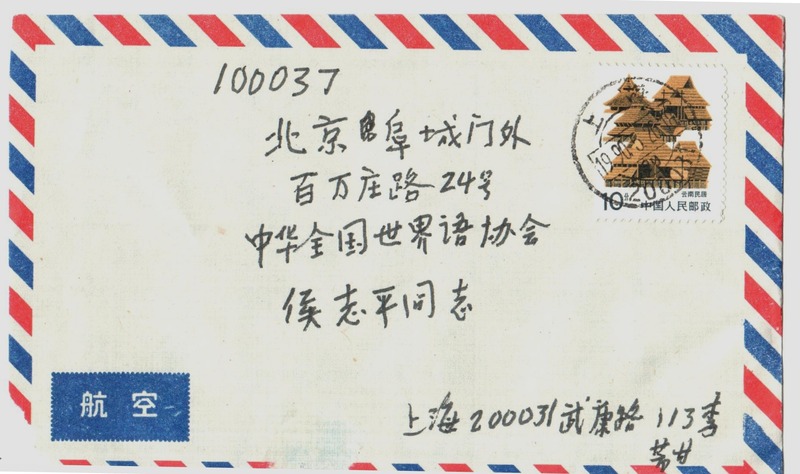 100037
北京阜城门外
百万庄路24号
中华全国世界语协会
侯志平同志
上海200031武康路113李
芾甘
航空
上海
10分
云南民居
中国人民邮政